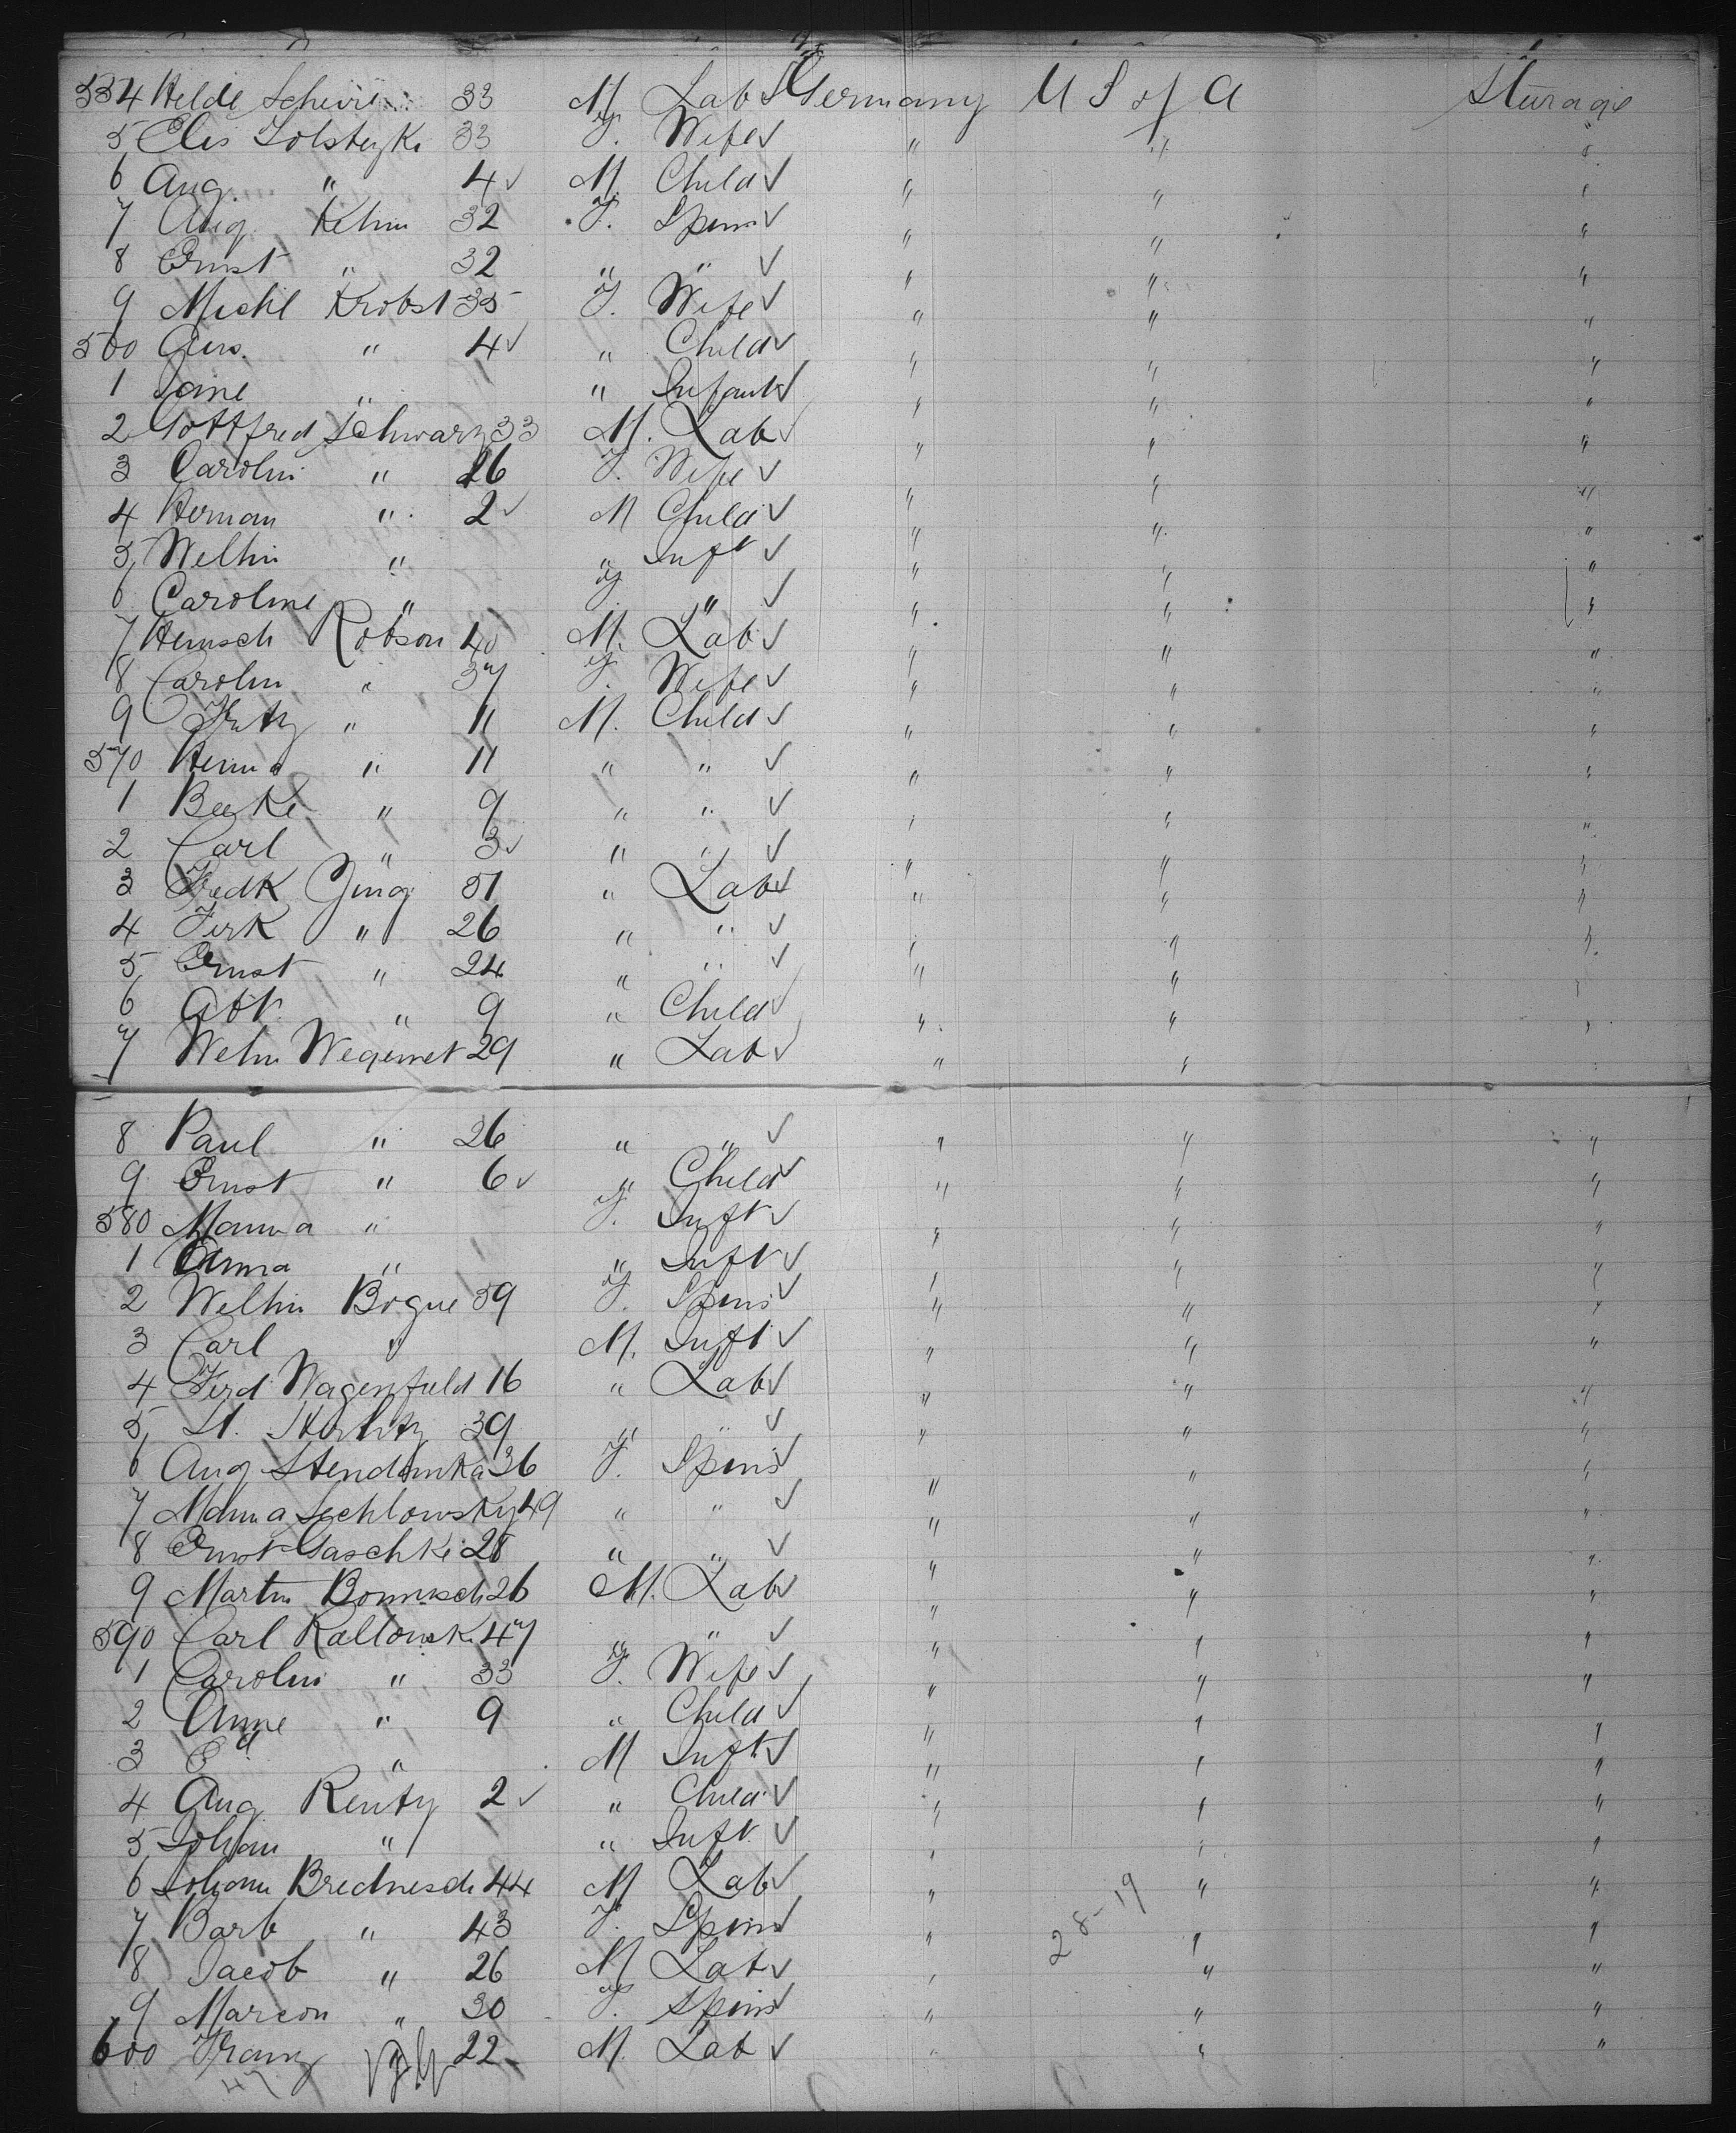 554 Helde 33 M Lab ✓ Germany U S of A Sturage
5 Elis 33 F. Wife ✓ " " "
6 Aug. " 4 ✓ M. Child ✓ " " "
7 Aug. Kehm 32 F. Spins ✓ " " "
8 Ernst " 32 " " ✓ " " "
9 Michl Krobst 35 F. Wife ✓ " " "
560 " 4 ✓ " Child ✓ " " "
1 Jane " " Infant ✓ " " "
2 Gottfred Schwarz 33 M. Lab ✓ " " "
3 Carolin " 26 F. Wife ✓ " " "
4 Herman " 2 ✓ M Child ✓ " " "
5 Welhn " " Inft ✓ " " "
6 Caroline " F " ✓ " " "
7 Heinsch Robson 40 M. Lab ✓ " " "
8 Carolin " 37 F. Wife ✓ " " "
9 Fritz " 11 M. Child ✓ " " "
570 " 11 " " ✓ " " "
1 " 9 " " ✓ " " "
2 Carl " 3 ✓ " " ✓ " " "
3 Fredk Jung 51 " Lab ✓ " " "
4 Ferk " 26 " " ✓ " " "
5 Ernst " 24 " " ✓ " " "
6 " 9 " Child ✓ " " "
7 Welm 29 " Lab ✓ " " "
8 Paul " 26 " " ✓ " " "
9 Ernst " 6 ✓ " Child ✓ " " "
580 " F. Inft ✓ " " "
1 Anna " " Inft ✓ " " "
2 Welhn Bogue 59 F. Spins ✓ " " "
3 Carl " M. Inft ✓ " " "
4 Ferd Wagenfuld 16 " Lab ✓ " " "
5 St. 39 " " ✓ " " "
6 Aug Stendomka 36 F. Spins ✓ " " "
7 49 " " ✓ " " "
8 Ernst Gaschke 28 " " ✓ " " "
9 Martin 26 M. Lab ✓ " " "
590 Carl 47 " " ✓ " " "
1 Carolin " 33 F. Wife ✓ " " "
2 Anne " 9 " Child ✓ " " "
3 Ed " M Inft ✓ " " "
4 Aug Rentz 2 ✓ " Child ✓ " " "
5 Johan " " Inft ✓ " " "
6 Johann 44 M Lab ✓ " " "
7 Barb " 43 F. Spins ✓ " " "
28-19
8 Jacob " 26 M Lab ✓ " " "
9 Mareon " 30 F. Spins ✓ " " "
600 Franz 22 M. Lab ✓ " " "